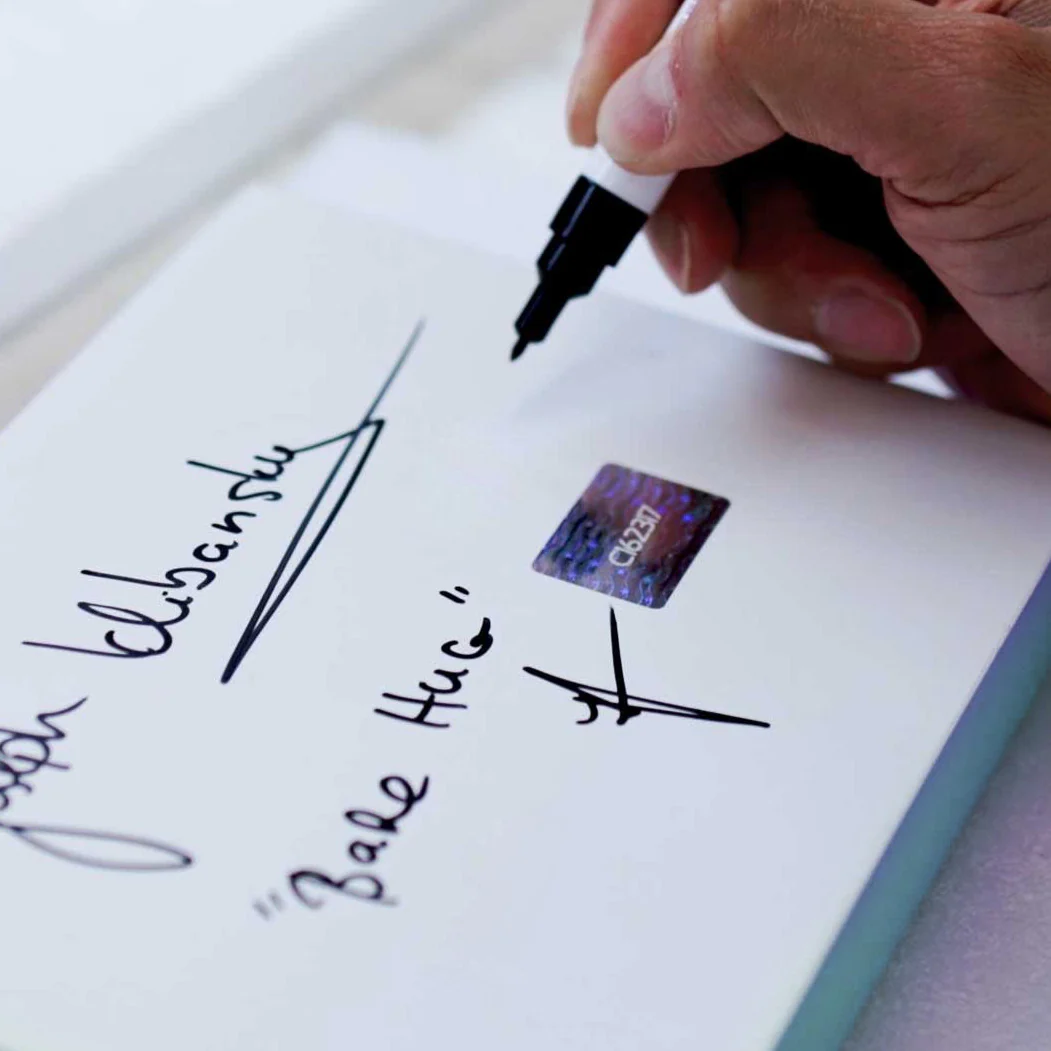 Joseph Klibansky
"Bare Hug"
C162317